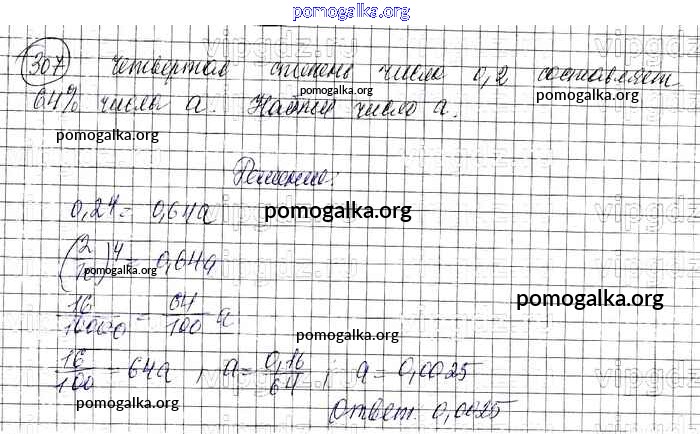 pomogalka.org
vipgdz.ru
307 Четвертая степень числа 0,2 составляет
pomogalka.org
pomogalka.org
64% числа a. Найти число a.
pomogalka.org
Решение:
0,2⁴ = 0,64a
pomogalka.org
(2/10)⁴ = 0,64a
pomogalka.org
16/10000 = 64/100 a
pomogalka.org
pomogalka.org
16/100 = 64a , a = 0,16/64 ; a = 0,0025
pomogalka.org
Ответ 0,0025